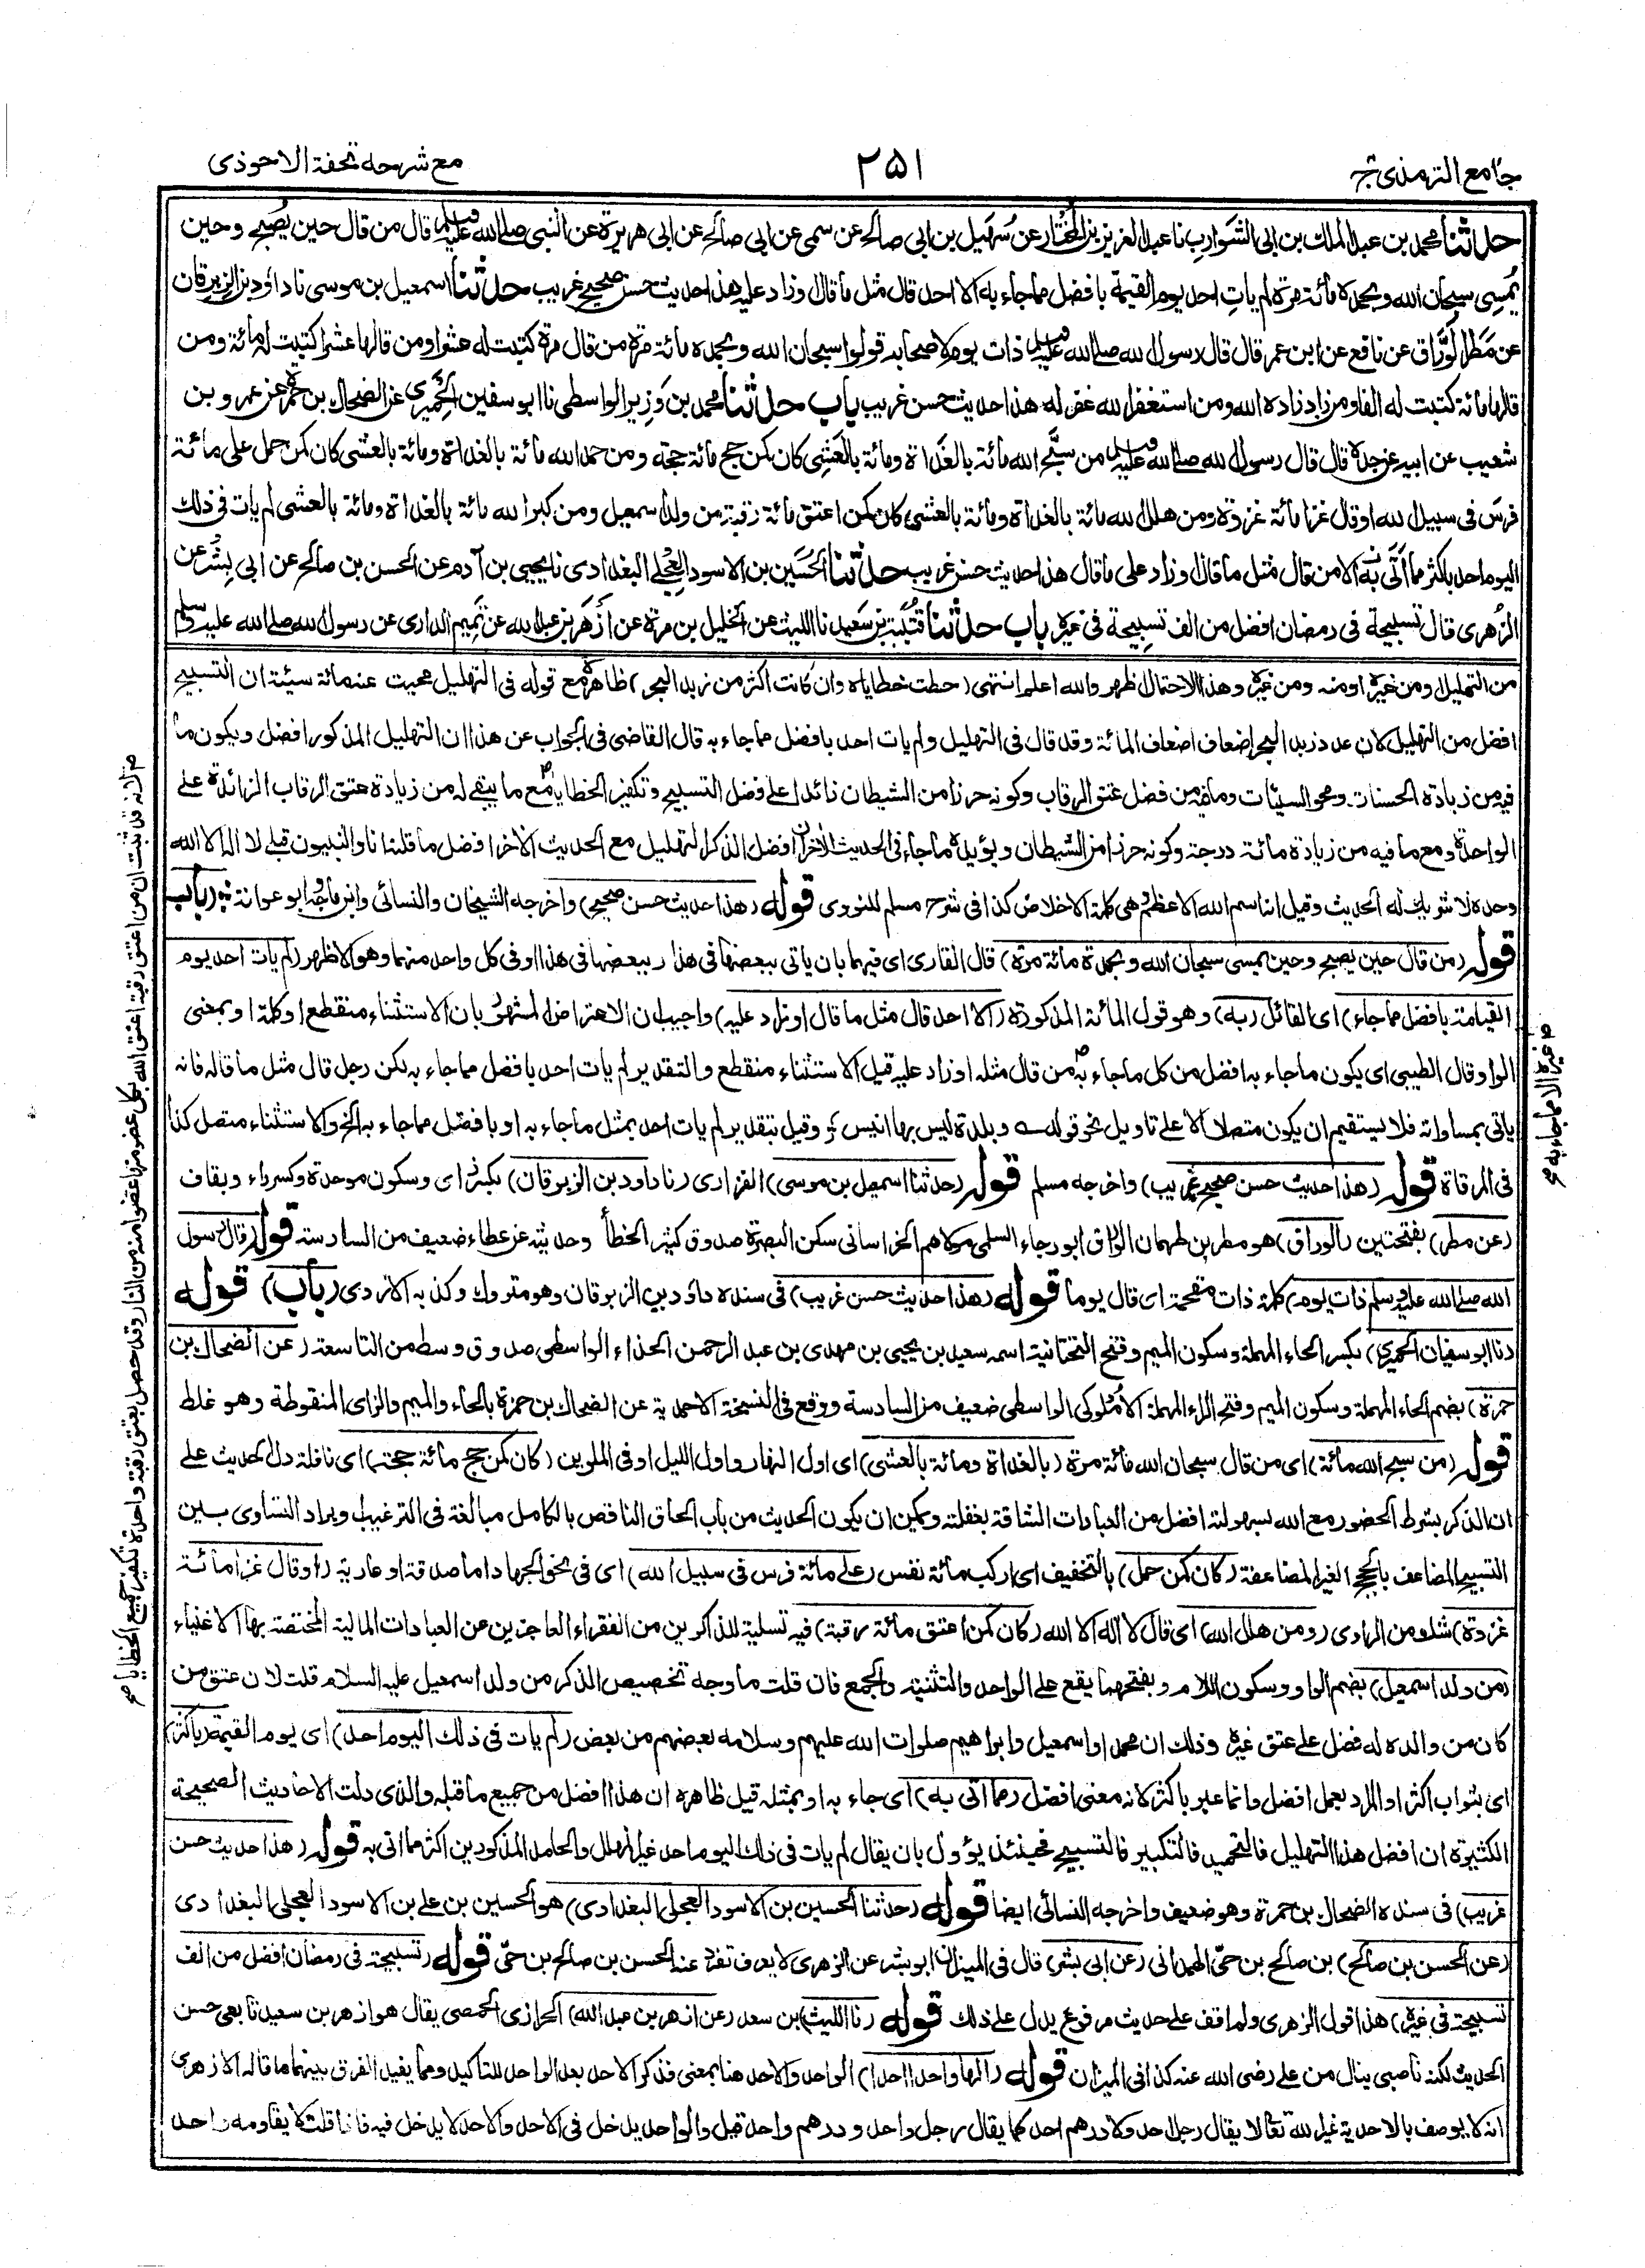 جامع الترمذی ج
۲۵۱
مع شرحه تحفة الاحوذی
حدثنا محمد بن عبد الملك بن ابی الشوارب نا عبد العزیز بن المختار عن سُهَیل بن ابی صالح عن سمی عن ابی صالح عن ابی هریرة عن النبی صلی الله علیه وسلم قال من قال حین یُصبح وحین
یُمسِی سبحان الله وبحمده مائة مرة لم یاتِ احد یوم القیمة بافضل مما جاء به الا احد قال مثل ما قال او زاد علیه هذا حدیث حسن صحیح غریب حدثنا اسمعیل بن موسی نا داؤد بن الزبرقان
عن مَطر الوَرَّاق عن نافع عن ابن عمر قال قال رسول الله صلی الله علیه وسلم ذات یوم لاصحابه قولوا سبحان الله وبحمده مائة مرة من قال مرة کتبت له عشرا ومن قالها عشرا کتبت له مائة ومن
قالها مائة کتبت له الفا ومن زاد زاده الله ومن استغفر الله غفر له هذا حدیث حسن غریب باب حدثنا محمد بن وَزیر الواسطی نا ابو سفین الحِمیَری عن الضحاك بن حُمرة عن عمرو بن
شعیب عن ابیه عن جده قال قال رسول الله صلی الله علیه وسلم من سَبَّح الله مائة بالغَداة ومائة بالعَشِی کان کمن حج مائة حجة ومن حمد الله مائة بالغداة ومائة بالعشی کان کمن حمل علی مائة
فرس فی سبیل الله او قال غزا مائة غزوة ومن هلل الله مائة بالغداة ومائة بالعشی کان کمن اعتق مائة رقبة من ولد اسمعیل ومن کبر الله مائة بالغداة ومائة بالعشی لم یات فی ذلك
الیوم احد باکثر مما اَتَی به الا من قال مثل ما قال او زاد علی ما قال هذا حدیث حسن غریب حدثنا الحُسَین بن الاسود العِجلی البغدادی نا یحیی بن آدم عن الحسن بن صالح عن ابی بِشر عن
الزُهری قال تسبیحة فی رمضان افضل من الف تسبِیحة فی غیره باب حدثنا قُتَیبة بن سَعید نا اللیث عن الخلیل بن مرة عن اَزهَر بن عبد الله عن تَمِیم الداری عن رسول الله صلی الله علیه وسلم
من التهلیل ومن غیره او منه ومن غیره وهذا الاحتمال ظهر والله اعلم انتهی (حطت خطایاه وان کانت اکثر من زبد البحر) ظاهره مع قوله فی التهلیل محیت عنه مائة سیئة ان التسبیح
افضل من التهلیل لان عدد زبد البحر اضعاف اضعاف المائة وقد قال فی التهلیل ولم یات احد بافضل مما جاء به قال القاضی فی الجواب عن هذا ان التهلیل المذکور افضل ویکون ما
فیه من زیادة الحسنات ومحو السیئات وما فیه من فضل عتق الرقاب وکونه حرزا من الشیطان زائدا علی فضل التسبیح وتکفیر الخطایا مع ما یبقی له من زیادة عتق الرقاب الزائدة علی
الواحدة ومع ما فیه من زیادة مائة درجة وکونه حرزا من الشیطان ویؤیده ما جاء فی الحدیث الآخر ان افضل الذکر التهلیل مع الحدیث الآخر افضل ما قلته انا والنبیون قبلی لا اله الا الله
وحده لا شریك له الحدیث وقیل انه اسم الله الاعظم وهی کلمة الاخلاص کذا فی شرح مسلم للنووی قوله (هذا حدیث حسن صحیح) واخرجه الشیخان والنسائی وابن ماجه وابو عوانة (باب
قوله (من قال حین یصبح وحین یمسی سبحان الله وبحمده مائة مرة) قال القاری ای فیهما بان یاتی ببعضها فی هذا وببعضها فی هذا او فی کل واحد منهما وهو الاظهر (لم یات احد یوم
القیامة بافضل مما جاء) ای القائل (به) وهو قول المائة المذکورة (الا احد قال مثل ما قال او زاد علیه) واجیب ان الاعتراض المشهور بان الاستثناء منقطع او کلمة او بمعنی
الواو قال الطیبی ای یکون ما جاء به افضل من کل ما جاء به من قال مثله او زاد علیه قیل الاستثناء منقطع والتقدیر لم یات احد بافضل مما جاء به لکن رجل قال مثل ما قاله فانه
یاتی بمساواته فلا یستقیم ان یکون متصلا الا علی تاویل نحو قوله وبلدة لیس بها انیس وقیل بتقدیر لم یات احد بمثل ما جاء به او بافضل مما جاء به الخ والاستثناء متصل کذا
فی المرقاة قوله (هذا حدیث حسن صحیح غریب) واخرجه مسلم قوله (حدثنا اسمعیل بن موسی) الفزاری (نا داود بن الزبرقان) بکسر زای وسکون موحدة وکسر راء وبقاف
(عن مطر) بفتحتین (الوراق) هو مطر بن طهمان الوراق ابو رجاء السلمی مولاهم الخراسانی سکن البصرة صدوق کثیر الخطأ وحدیثه عن عطاء ضعیف من السادسة قوله (قال رسول
الله صلی الله علیه وسلم ذات یوم) کلمة ذات مقحمة ای قال یوما قوله (هذا حدیث حسن غریب) فی سنده داؤد بن الزبرقان وهو متروك وکذبه الازدی (باب) قوله
(نا ابو سفیان الحمیری) بکسر الحاء المهملة وسکون المیم وفتح التحتانیة اسمه سعید بن یحیی بن مهدی بن عبد الرحمن الحذاء الواسطی صدوق وسط من التاسعة (عن الضحاك بن
حمرة) بضم الحاء المهملة وسکون المیم وفتح الراء المهملة الاُملوکی الواسطی ضعیف من السادسة ووقع فی النسخة الاحمدیة عن الضحاك بن حمزة بالحاء والمیم والزای المنقوطة وهو غلط
قوله (من سبح الله مائة) ای من قال سبحان الله مائة مرة (بالغداة ومائة بالعشی) ای اول النهار واول اللیل او فی الملوین (کان کمن حج مائة حجة) ای نافلة دل الحدیث علی
ان الذکر بشرط الحضور مع الله بسهولته افضل من العبادات الشاقة بغفلته ویمکن ان یکون الحدیث من باب الحاق الناقص بالکامل مبالغة فی الترغیب او یراد التساوی بین
التسبیح المضاعف بالحجج الغیر المضاعفة (کان کمن حمل) بالتخفیف ای ارکب مائة نفس (علی مائة فرس فی سبیل الله) ای فی نحو الجهاد اما صدقة او عاریة (او قال غزا مائة
غزوة) شك من الراوی (ومن هلل الله) ای قال لا اله الا الله (کان کمن اعتق مائة رقبة) فیه تسلیة للذاکرین من الفقراء العاجزین عن العبادات المالیة المختصة بها الاغنیاء
(من ولد اسمعیل) بضم الواو وسکون اللام وبفتحهما یقع علی الواحد والتثنیة والجمع فان قلت ما وجه تخصیص الذکر من ولد اسمعیل علیه السلام قلت لان عتق من
کان من ولده له فضل علی عتق غیره وذلك ان محمدا واسمعیل وابراهیم صلوات الله علیهم وسلامه بعضهم من بعض (لم یات فی ذلك الیوم احد) ای یوم القیمة (باکثر)
ای بثواب اکثر او المراد بعمل افضل وانما عبر باکثر لانه معنی افضل (مما اتی به) ای جاء به او بمثله قیل ظاهره ان هذا افضل من جمیع ما قبله والذی دلت الاحادیث الصحیحة
الکثیرة ان افضل هذا التهلیل فالتحمید فالتکبیر فالتسبیح فحینئذ یؤول بان یقال لم یات فی ذلك الیوم احد غیر المهلل والحامد المذکورین اکثر مما اتی به قوله (هذا حدیث حسن
غریب) فی سنده الضحاك بن حمرة وهو ضعیف واخرجه النسائی ایضا قوله (حدثنا الحسین بن الاسود العجلی البغدادی) هو الحسین بن علی بن الاسود العجلی البغدادی
(عن الحسن بن صالح) بن صالح بن حیّ الهمدانی (عن ابی بشر) قال فی المیزان ابو بشر عن الزهری لا یعرف تفرد عنه الحسن بن صالح بن حیّ قوله (تسبیحة فی رمضان افضل من الف
تسبیحة فی غیره) هذا قول الزهری ولم اقف علی حدیث مرفوع یدل علی ذلك قوله (نا اللیث) بن سعد (عن ازهر بن عبد الله) الحرازی الحمصی یقال هو ازهر بن سعید تابعی حسن
الحدیث لکنه ناصبی ینال من علی رضی الله عنه کذا فی المیزان قوله (الها واحدا احدا) الواحد والاحد هنا بمعنی فذکر الاحد بعد الواحد للتاکید ومما یفید الفرق بینهما ما قاله الازهری
انه لا یوصف بالاحدیة غیر الله تعالی لا یقال رجل احد ولا درهم احد کما یقال رجل واحد ودرهم واحد قیل والواحد یدخل فی الاحد والاحد لا یدخل فیه فاذا قلت لا یقاومه واحد
لانه قد ثبت ان من اعتق رقبة اعتق الله بکل عضو منها عضوا منه من النار وقد حصل بعتق رقبة واحدة تکفیر جمیع الخطایا
غیره الا مما جاء به